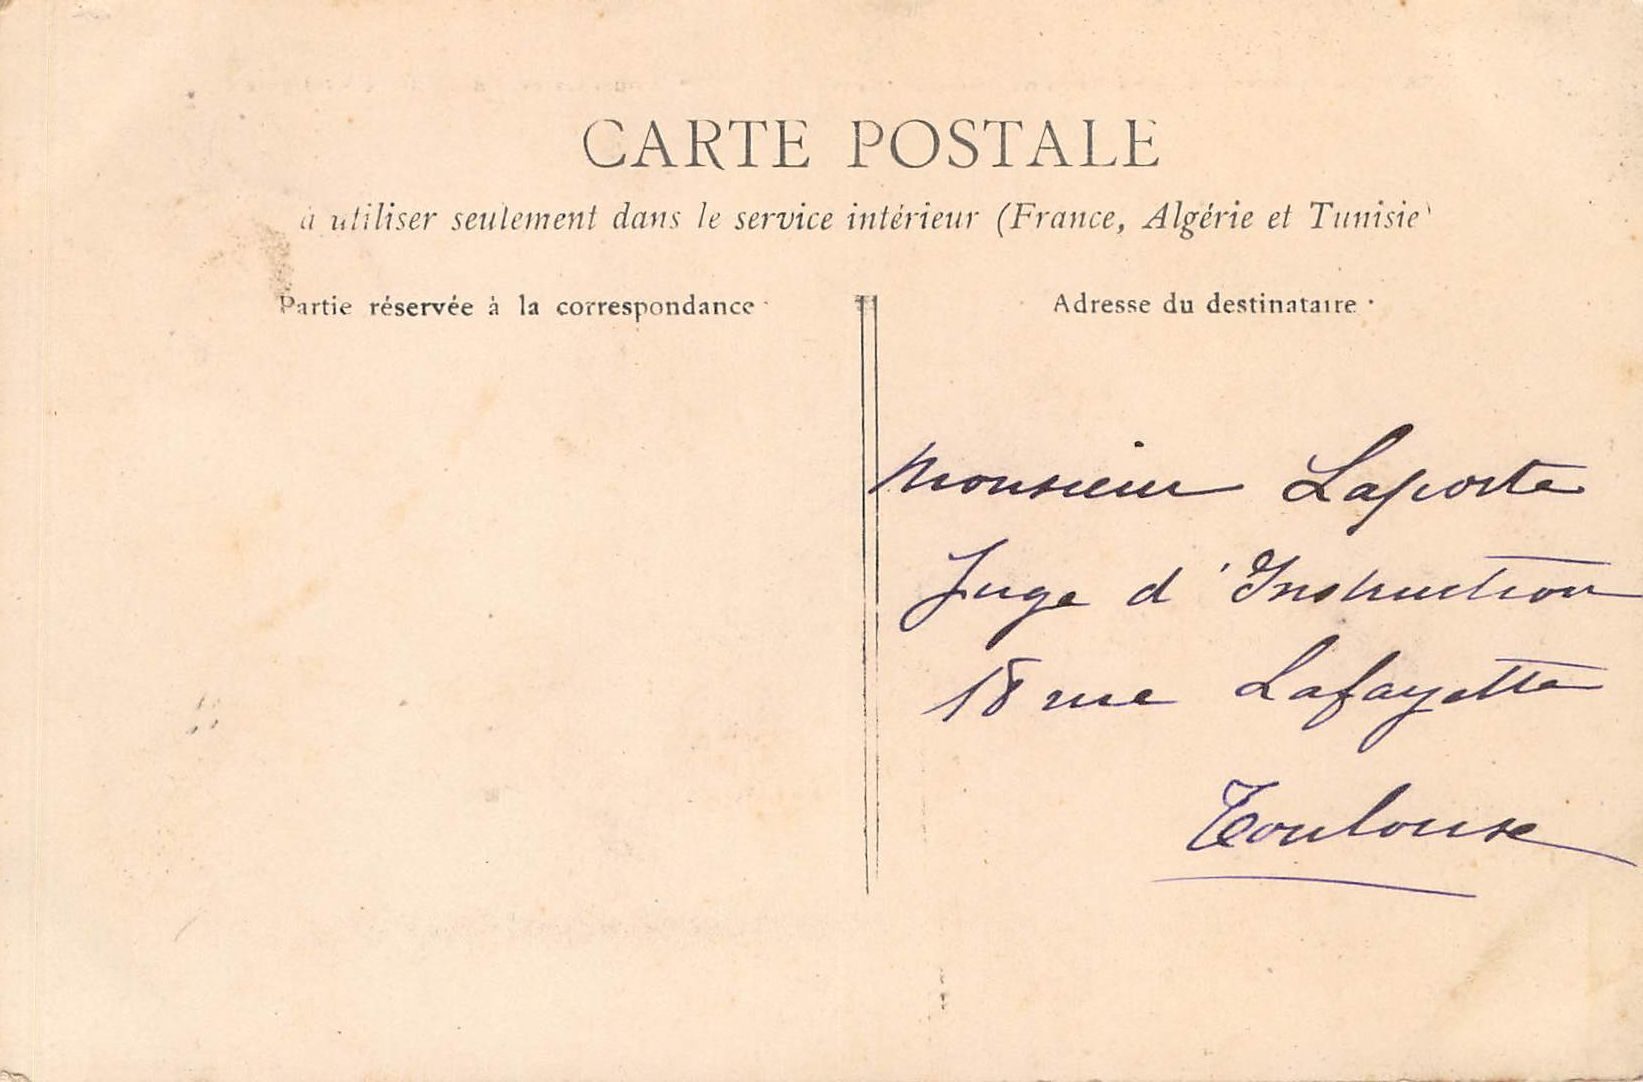 CARTE POSTALE
à utiliser seulement dans le service intérieur (France, Algérie et Tunisie)
Partie réservée à la correspondance
Adresse du destinataire
Monsieur Laporte
Juge d'Instruction
18 rue Lafayette
Toulouse